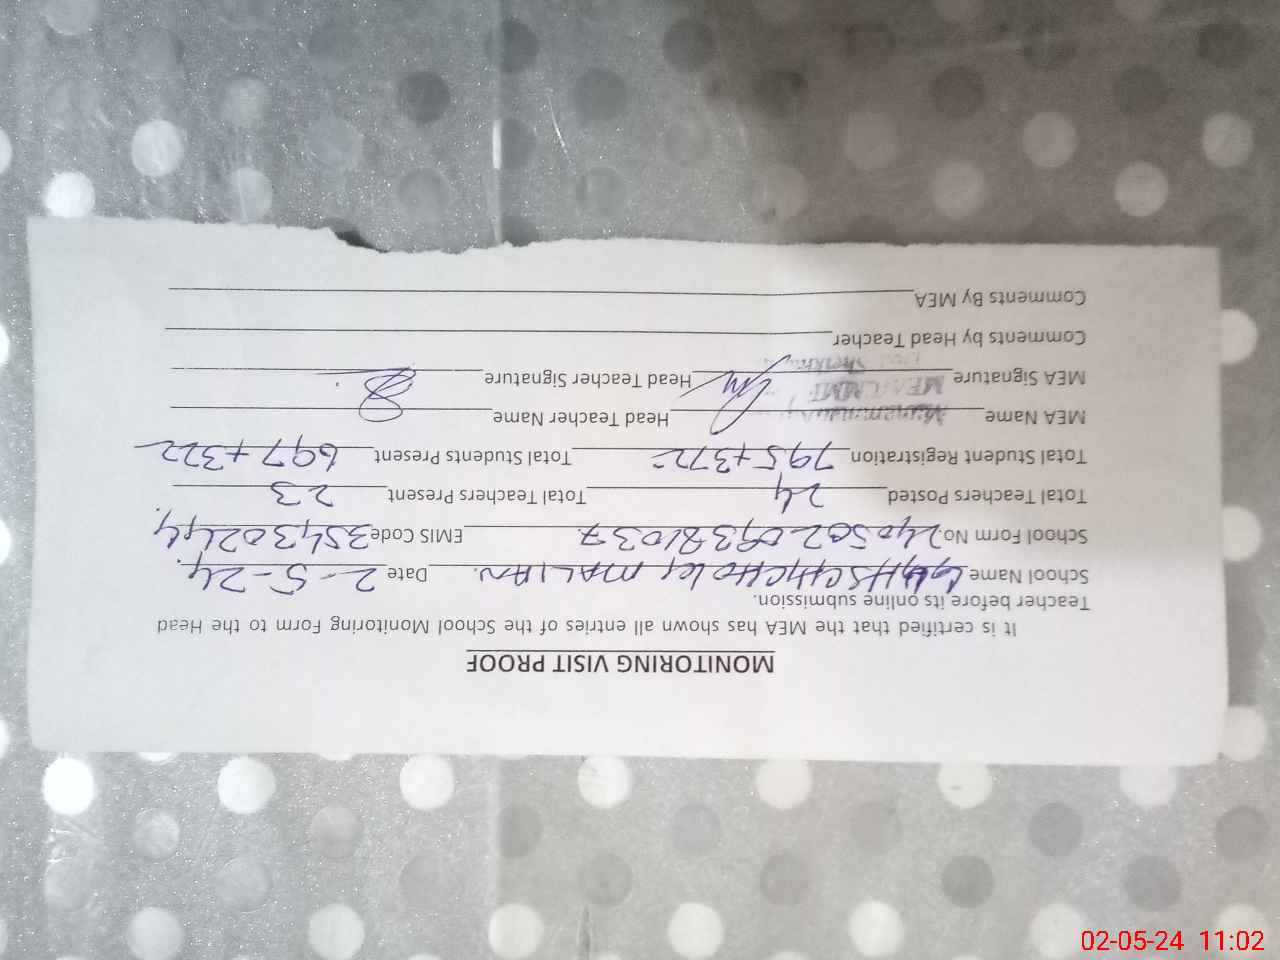 MONITORING VISIT PROOF
It is certified that the MEA has shown all entries of the School Monitoring Form to the Head
Teacher before its online submission.
School Name GGHSGHCHOKY MALIAN. Date 2-5-24.
School Form No. 24050209381037. EMIS Code 35430244
Total Teachers Posted 24 Total Teachers Present 23
Total Student Registration 795+372 Total Students Present 697+322
MEA Name Head Teacher Name
MEA Signature Head Teacher Signature
Comments by Head Teacher
Comments By MEA
02-05-24 11:02